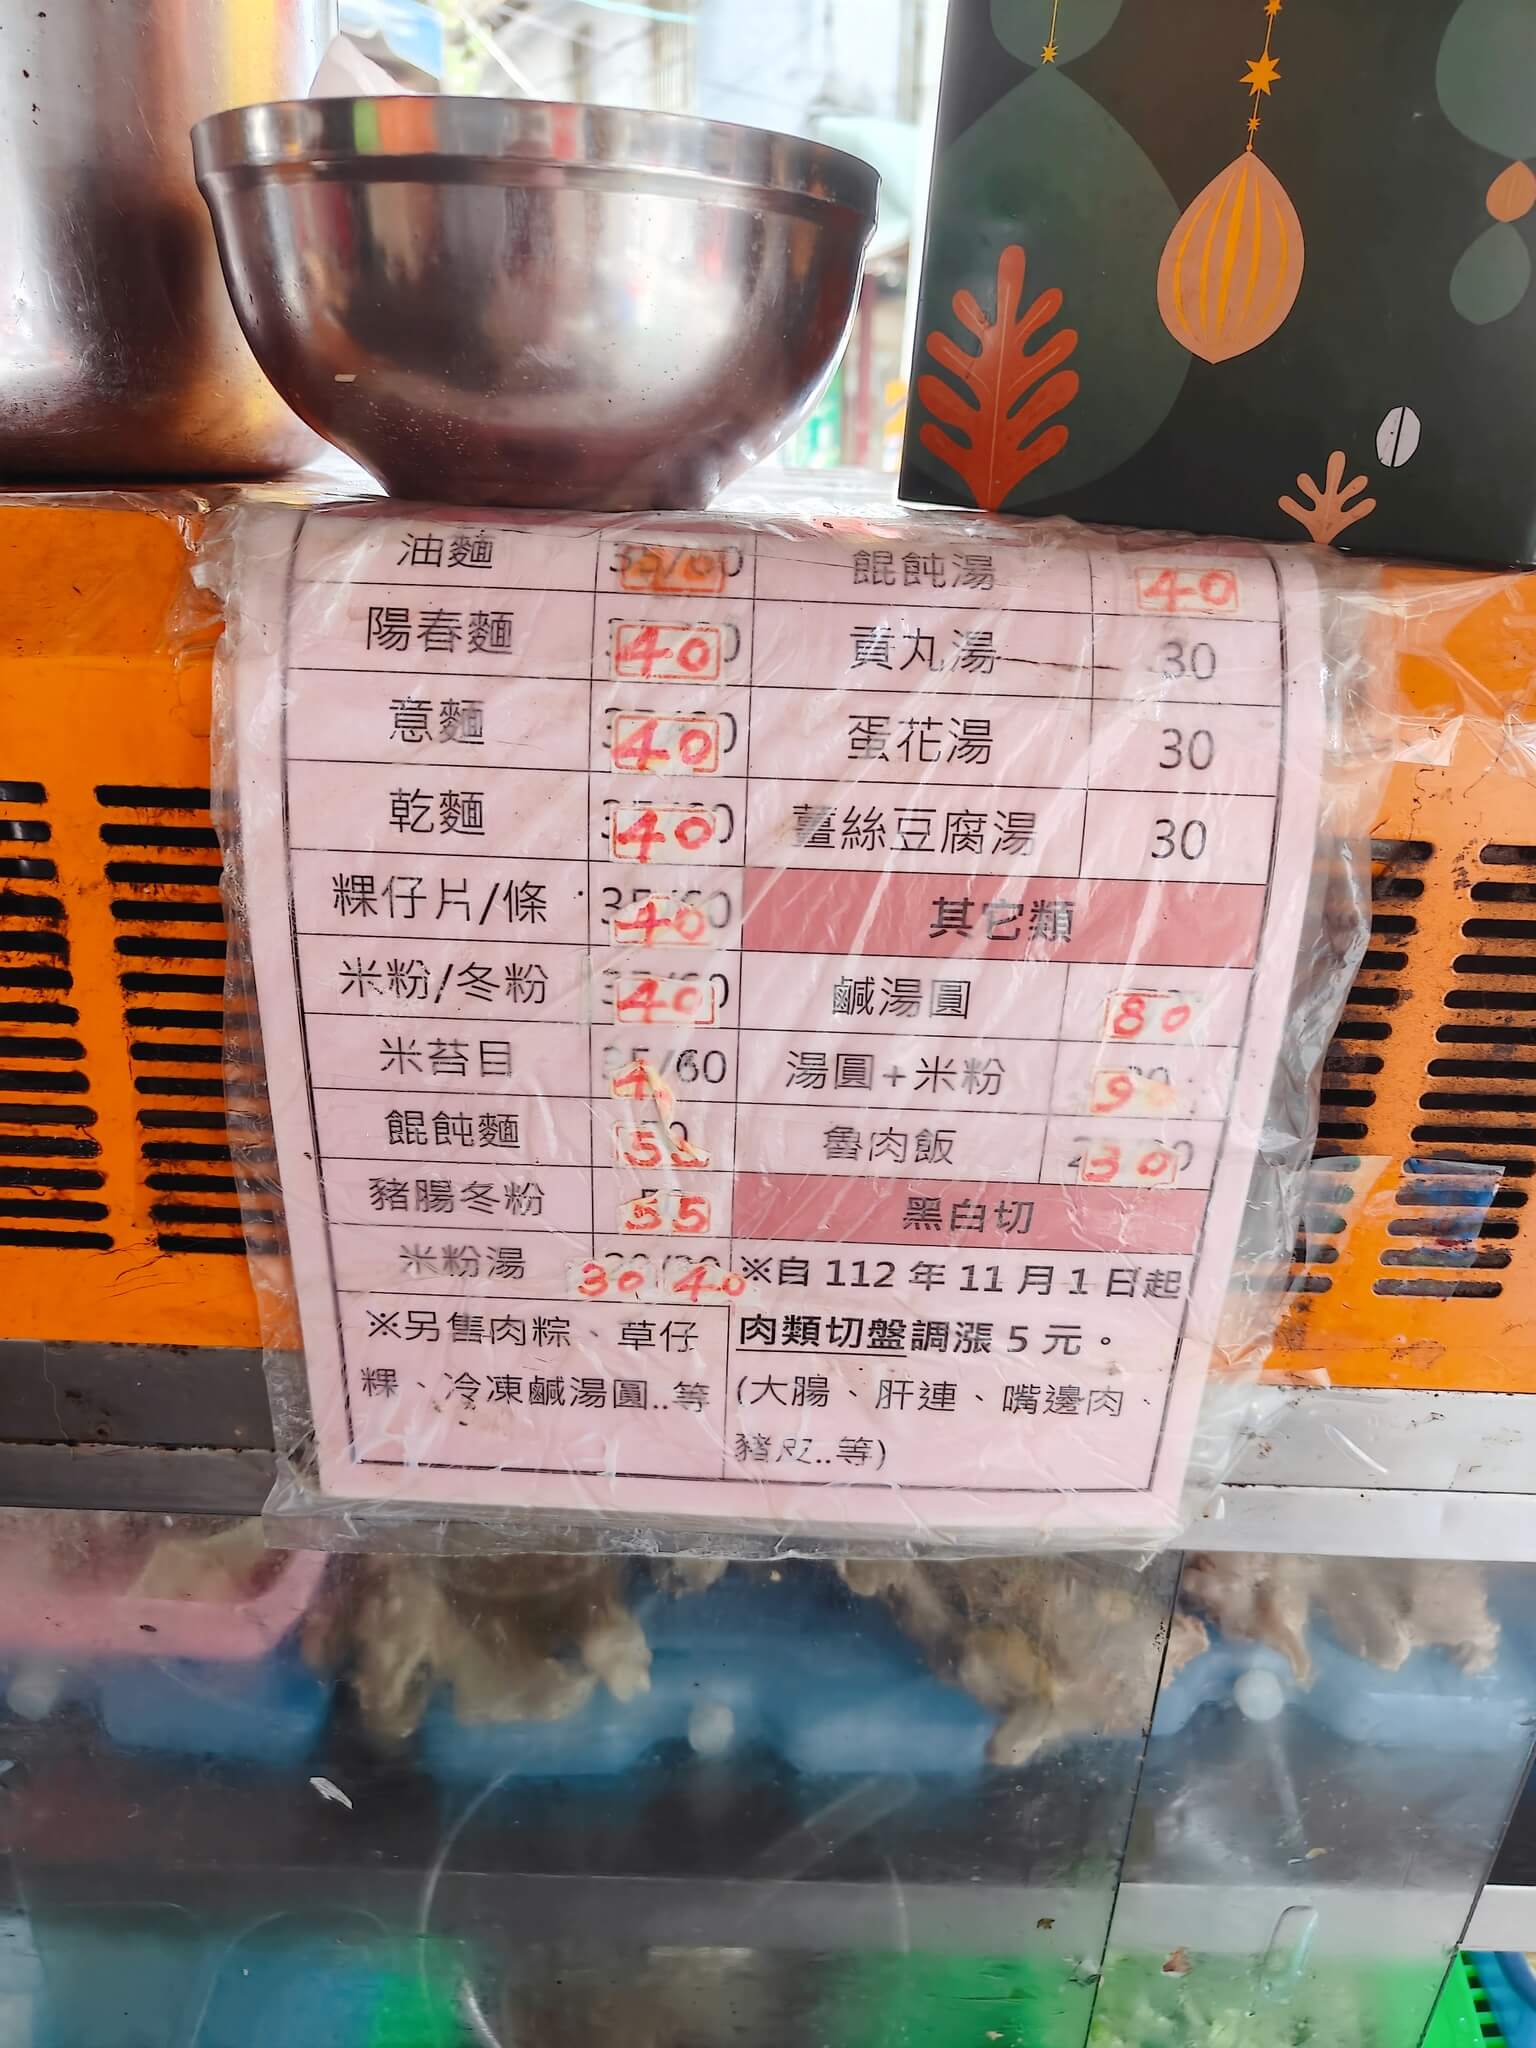 油麵 35/60 餛飩湯 40
陽春麵 40 貢丸湯 30
意麵 40 蛋花湯 30
乾麵 40 薑絲豆腐湯 30
粿仔片/條 40 其它類
米粉/冬粉 40 鹹湯圓 80
米苔目 /60 湯圓+米粉 90
餛飩麵 55 魯肉飯 30
豬腸冬粉 55 黑白切
米粉湯 30 40 ※自 112 年 11 月 1 日起
※另售肉粽、草仔
粿、冷凍鹹湯圓..等
肉類切盤調漲 5 元。
(大腸、肝連、嘴邊肉、
豬皮..等)